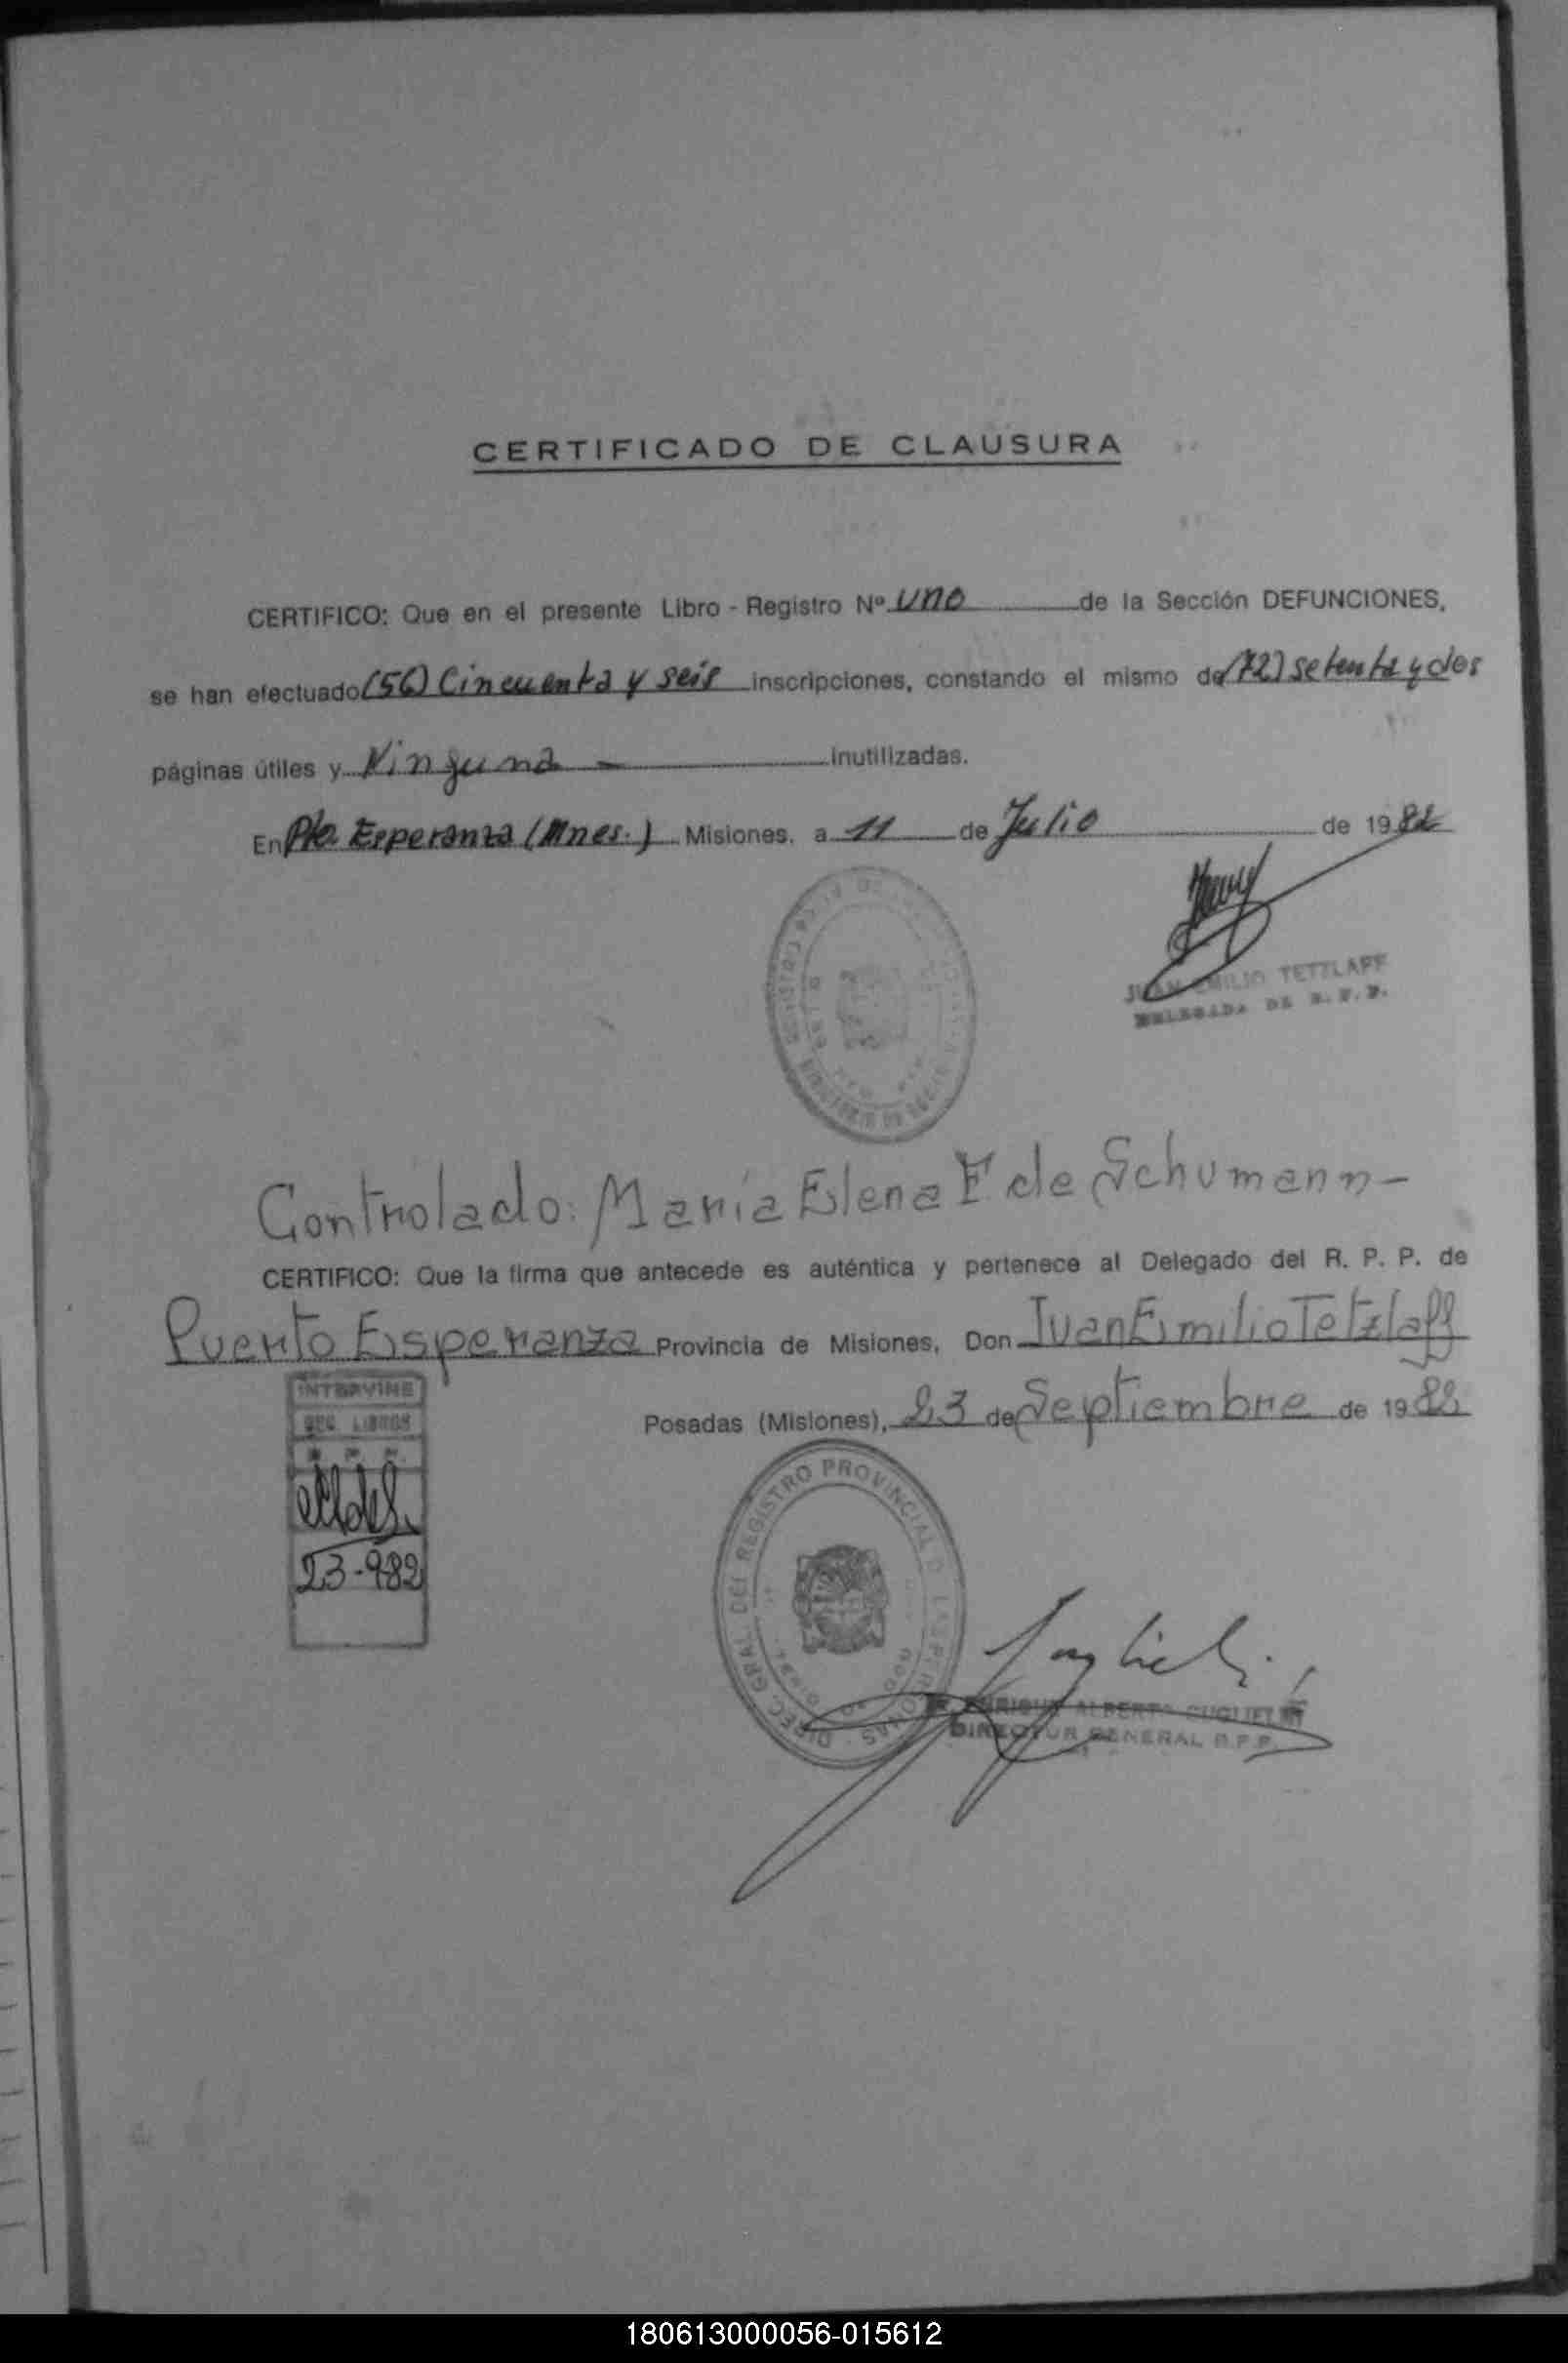 CERTIFICADO DE CLAUSURA
CERTIFICO: Que en el presente Libro - Registro Nº uno de la Sección DEFUNCIONES,
se han efectuado (56) Cincuenta y seis inscripciones, constando el mismo de (72) setenta y dos
páginas útiles y Ninguna — inutilizadas.
En Pto Esperanza (Mnes.) Misiones, a 11 de Julio de 1982
JUAN EMILIO TETZLAFF
DELEGADA DE R. P. P.
Controlado: María Elena F de Schumann -
CERTIFICO: Que la firma que antecede es auténtica y pertenece al Delegado del R. P. P. de
Puerto Esperanza Provincia de Misiones, Don Juan Emilio Tetzlaff
Posadas (Misiones), 23 de Septiembre de 1982
INTERVINE
SEC. LIBROS
23-982
DIREC. GRAL. DEL REGISTRO PROVINCIAL D LAS PERSONAS
ENRIQUE ALBERTO GUGLIELMI
DIRECTOR GENERAL R.P.P.
180613000056-015612